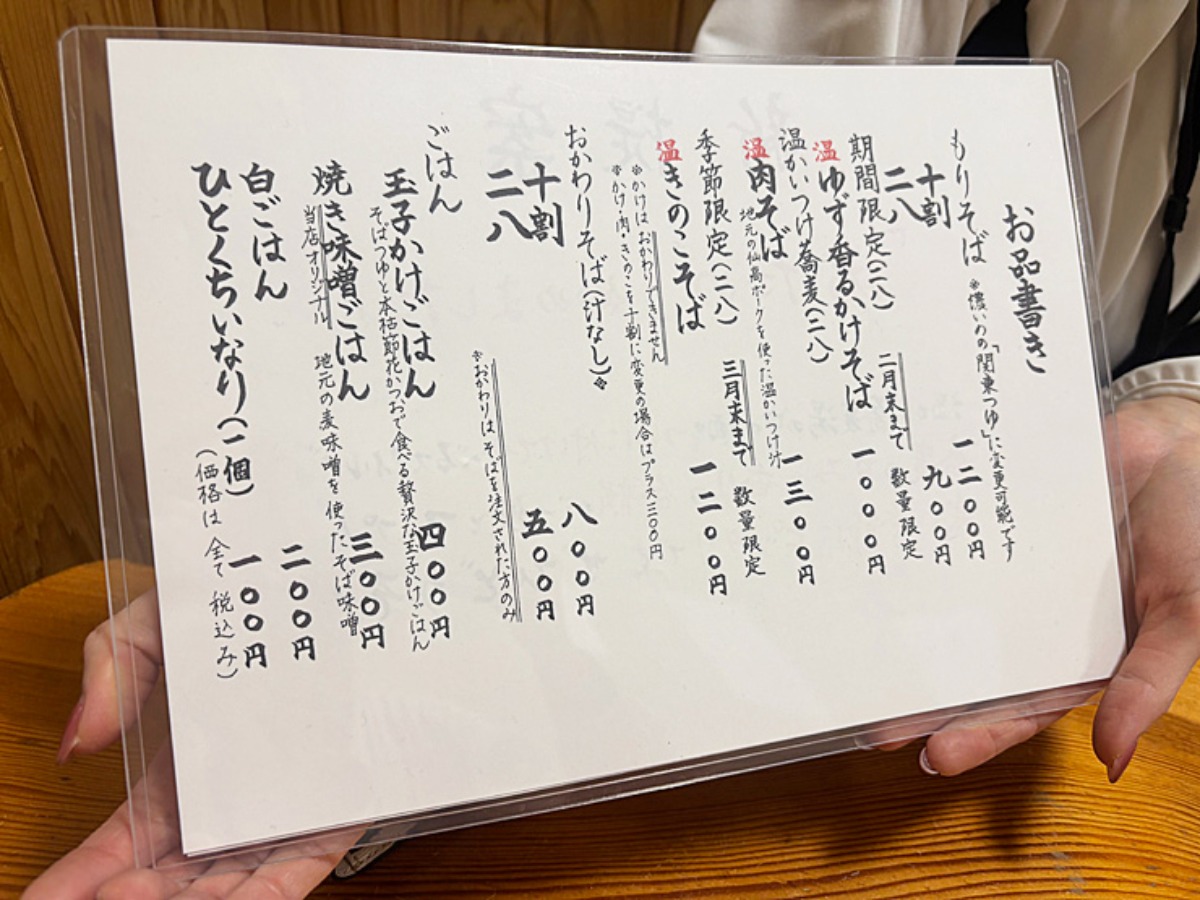 お品書き
もりそば ※濃いめの「関東つゆ」に変更可能です
十割 一二〇〇円
二八 九〇〇円
期間限定(二八) 二月末まで 数量限定
温 ゆず香るかけそば 一〇〇〇円
温かいつけ蕎麦(二八)
温 肉そば 一三〇〇円
地元の仙高ポークを使った温かいつけ汁
季節限定(二八) 三月末まで 数量限定
温 きのこそば 一二〇〇円
※かけはおかわりできません
※かけ・肉・きのこを十割に変更の場合はプラス三〇〇円
おかわりそば(汁なし)※
十割 八〇〇円
二八 五〇〇円
※おかわりは そばを注文された方のみ
ごはん
玉子かけごはん 四〇〇円
そばつゆと本枯節花かつおで食べる贅沢な玉子かけごはん
焼き味噌ごはん 三〇〇円
当店オリジナル 地元の麦味噌を使ったそば味噌
白ごはん 二〇〇円
ひとくちいなり(一個) 一〇〇円
(価格は 全て 税込み)